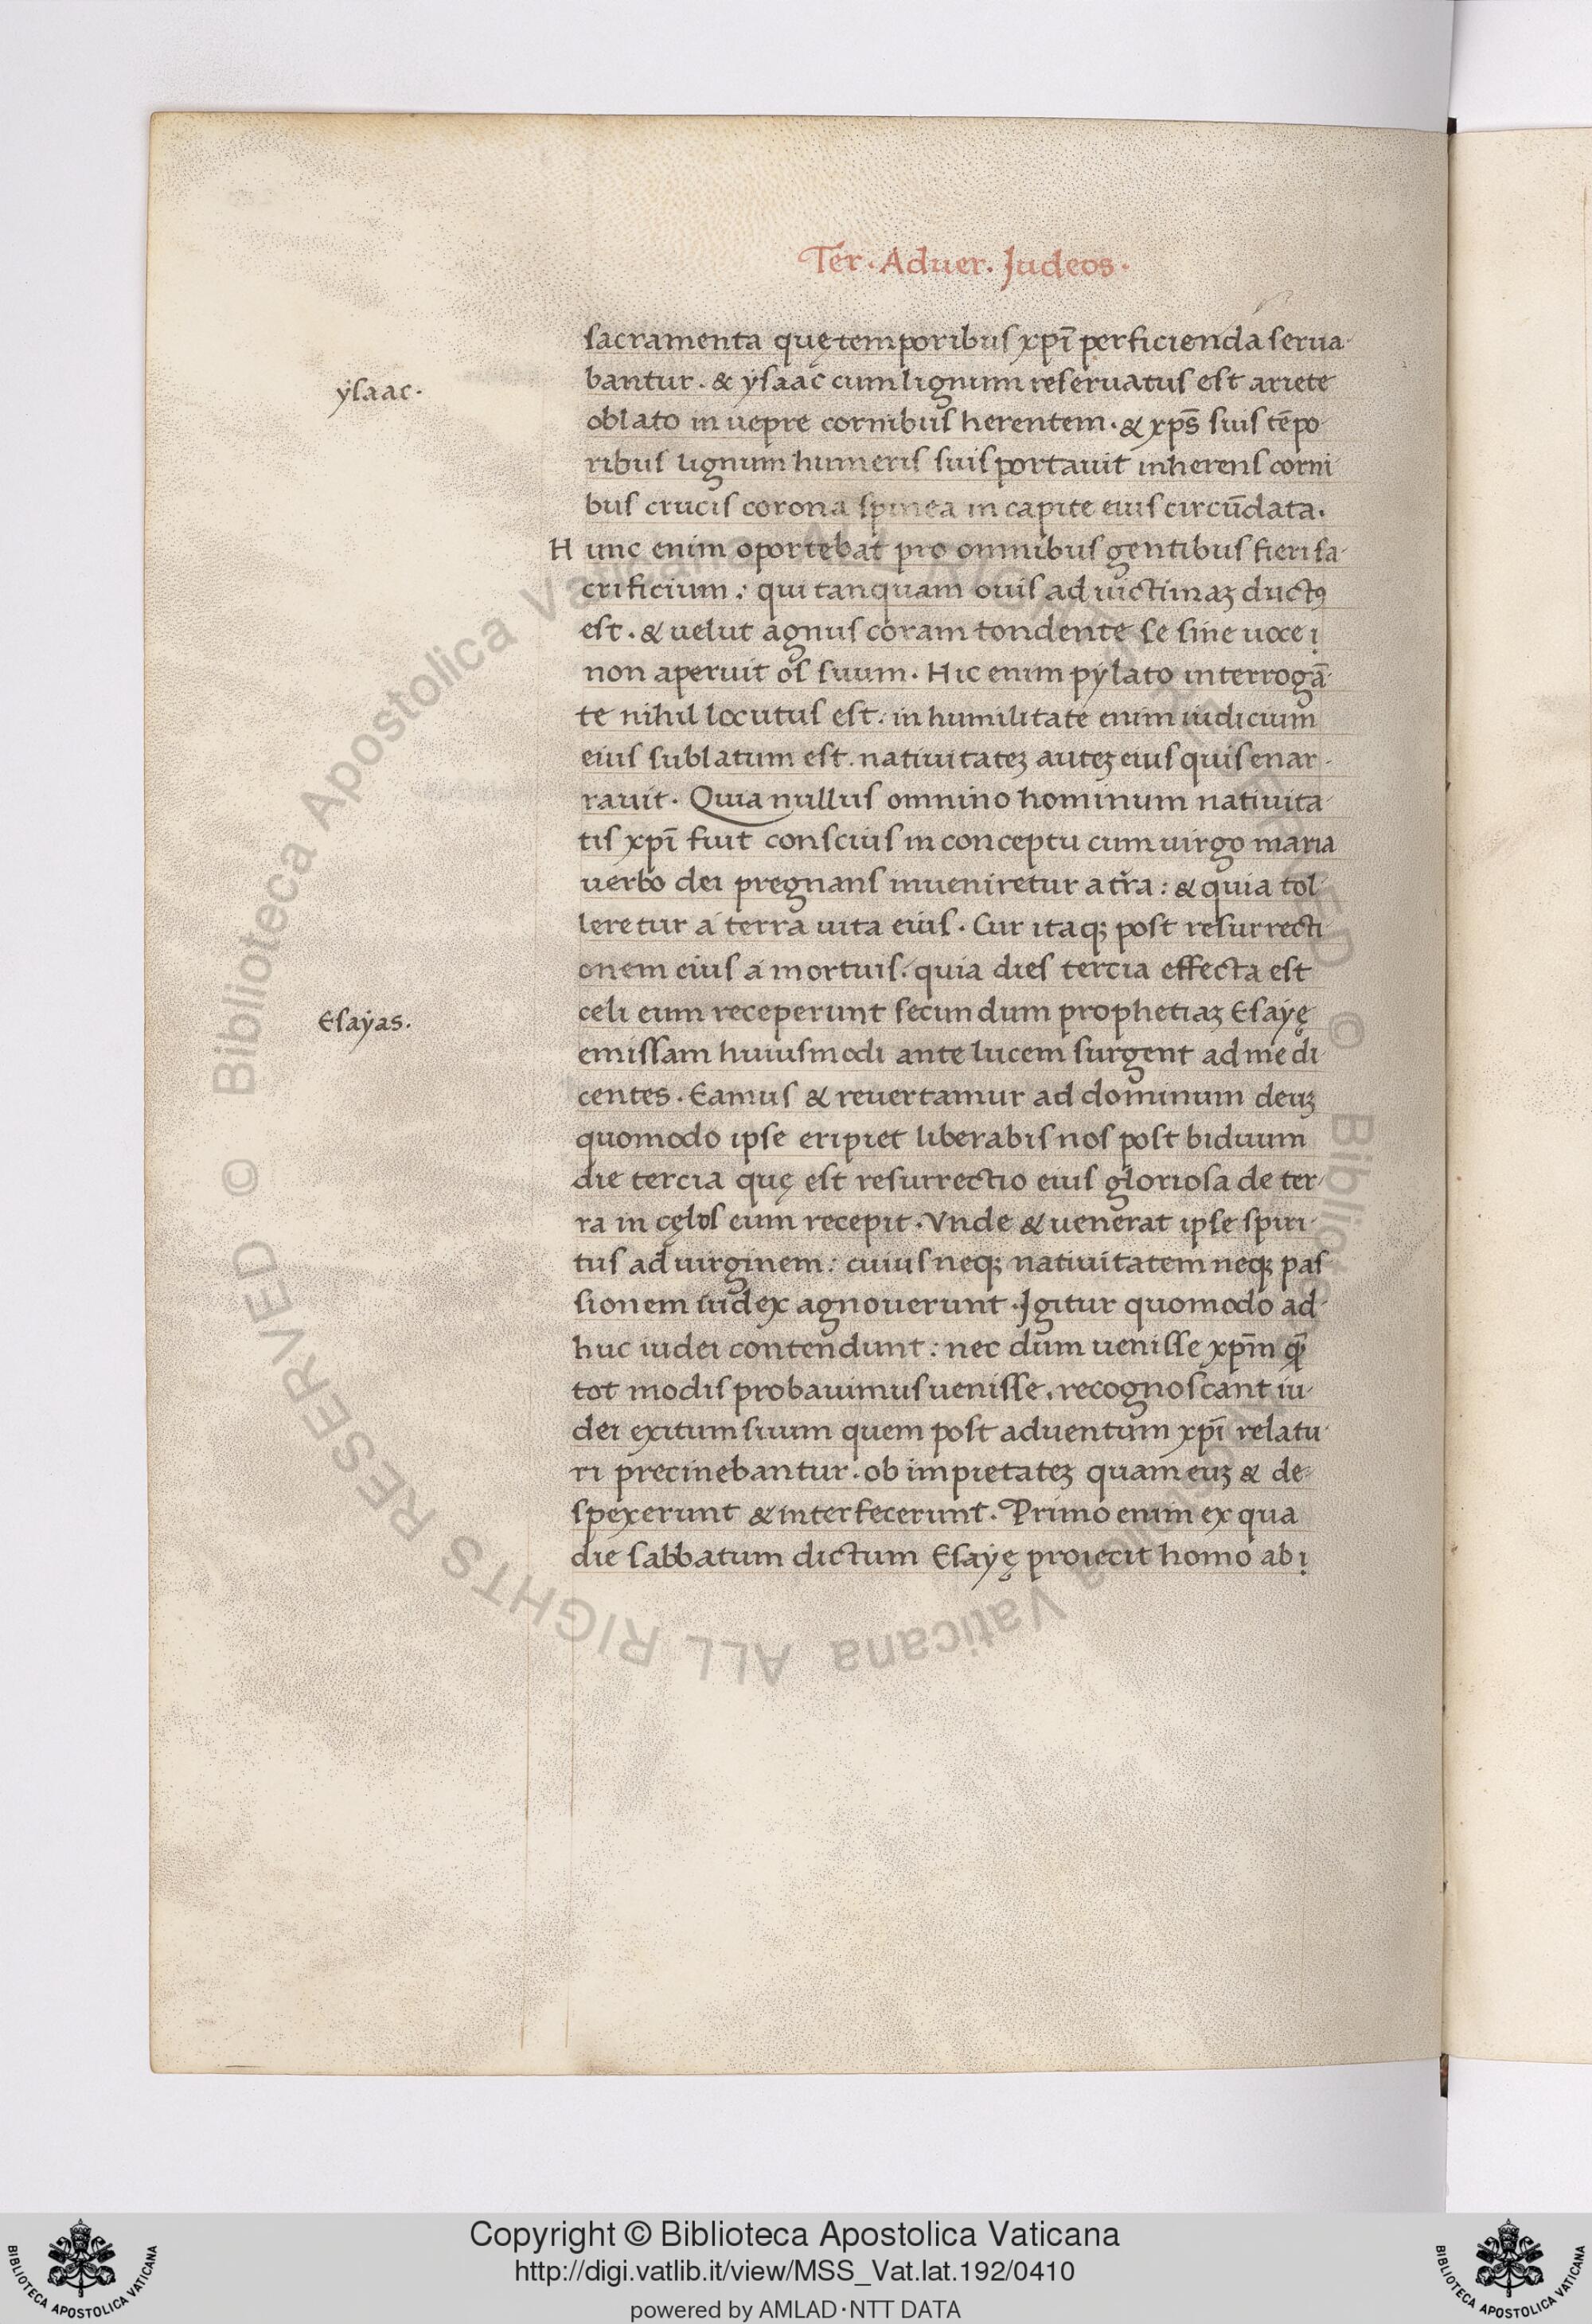 Ter . Aduer . Judeos .
sacramenta quę temporibus xp̄i perficienda serua-
ẏsaac .
bantur . & ẏsaac cum lignum reseruatus est ariete
oblato in uepre cornibus herentem . & xp̄s suis tēpo-
ribus lignum humeris suis portauit inherens corni-
bus crucis corona spinea in capite eius circūdata .
Hunc enim oportebat pro omnibus gentibus fieri sa-
crificium : qui tanquam ouis ad uictimaꝫ ductꝰ
est . & uelut agnus coram tondente se sine uoce ı̣
non aperuit os suum . Hic enim pẏlato interrogā-
te nihil locutus est . in humilitate enim iudicium
eius sublatum est . natiuitateꝫ auteꝫ eius quis enar-
rauit . Quia nullus omnino hominum natiuita-
tis xp̄i fuit conscius in conceptu cum uirgo maria
uerbo dei pregnans inueniretur a tr̄a : & quia tol-
leretur a terra uita eius . Cur itaqꝫ post resurrecti
onem eius a mortuis . quia dies tercia effecta est
celi eum receperunt secundum prophetiaꝫ Esaẏę
Esaẏas .
emissam huiusmodi ante lucem surgent ad me di-
centes . Eamus & reuertamur ad dominum deuꝫ
quomodo ipse eripiet liberabis nos post biduum
die tercia quę est resurrectio eius gloriosa de ter-
ra in cęlos eum recepit . Vnde & uenerat ipse spiri-
tus ad uirginem : cuius neqꝫ natiuitatem neqꝫ pas
sionem iudex agnouerunt . Igitur quomodo ad-
huc iudei contendunt : nec dum uenisse xp̄m
tot modis probauimus uenisse . recognoscant iu-
dei exitum suum quem post aduentum xp̄i relatu-
ri precinebantur . ob impietateꝫ quam euꝫ & de-
spexerunt & interfecerunt . Primo enim ex qua
die sabbatum dictum Esaẏę proiecit homo ab ı̣
© Biblioteca Apostolica Vaticana ALL RIGHTS RESERVED © Biblioteca Apostolica Vaticana ALL RIGHTS RESERVED
Copyright © Biblioteca Apostolica Vaticana
http://digi.vatlib.it/view/MSS_Vat.lat.192/0410
powered by AMLAD·NTT DATA
BIBLIOTECA APOSTOLICA VATICANA
BIBLIOTECA APOSTOLICA VATICANA